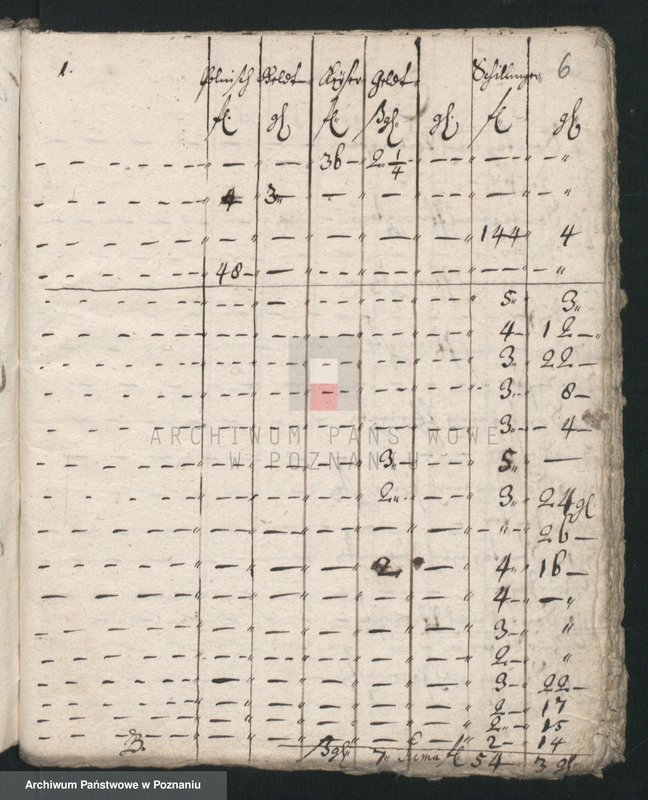 1. Polnisch Geldt Keyser Geldt Schillinger 6
fl. gl. fl. ßgl. gl. fl. gl.
36 2 1/4
4 3
144 4
48
5 3
4 12
3 22
3 8
3 4
ARCHIWUM PAŃSTWOWE
W POZNANIU
3 5
2 3 24 gl
26
2 4 16
4
3
2
3 22
2 17
2 15
2 14
B. ßgl 7 Suma fl 54 3 gl
Archiwum Państwowe w Poznaniu